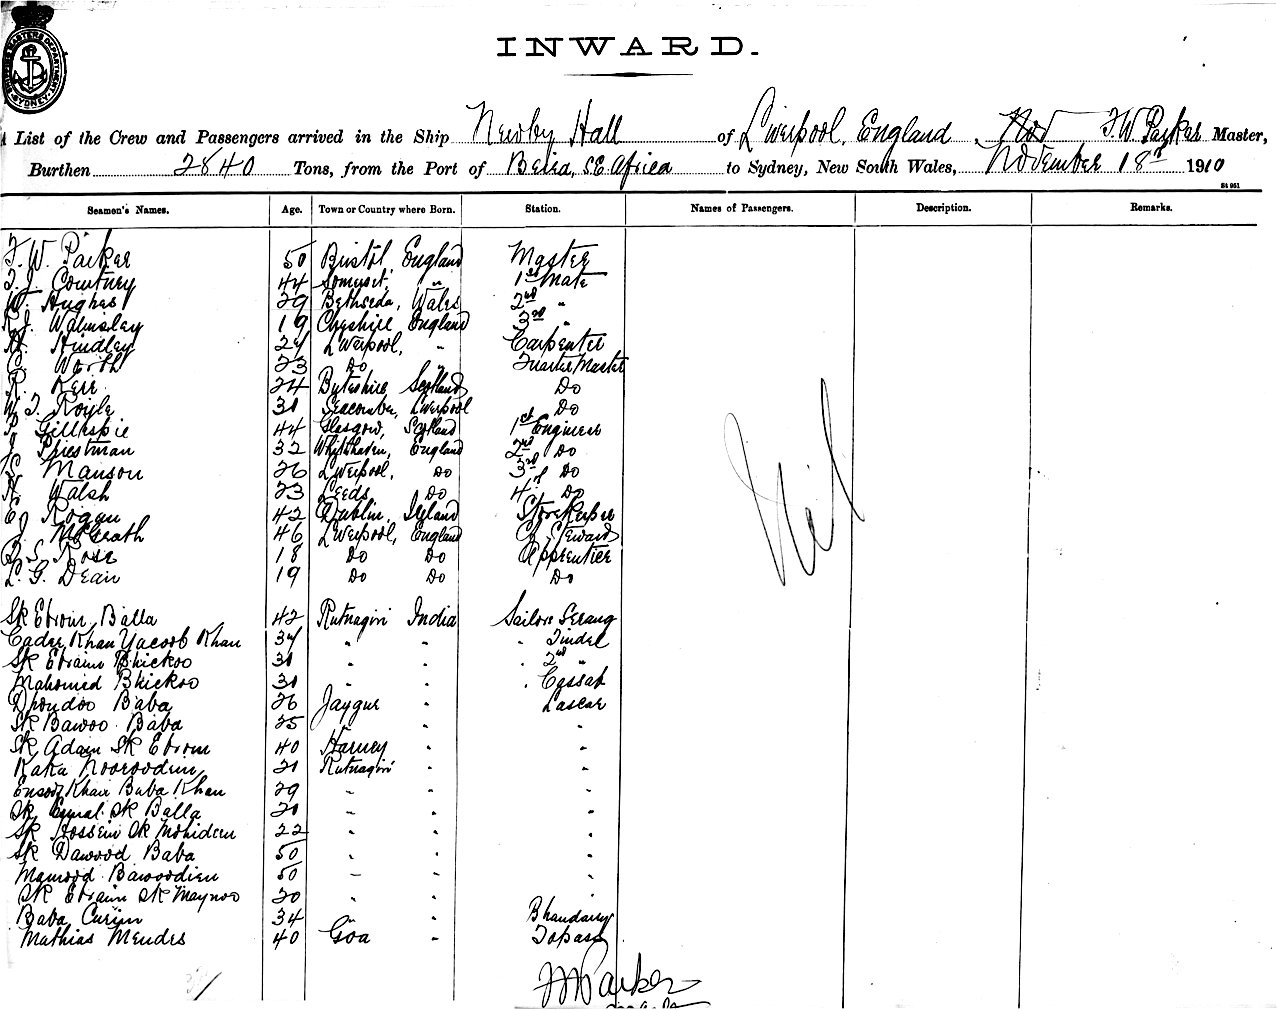 SHIPPING MASTERS DEPARTMENT SYDNEY
INWARD.
List of the Crew and Passengers arrived in the Ship Newby Hall of Liverpool, England, F. W. Parker Master,
Burthen 2840 Tons, from the Port of Beira, S.E. Africa to Sydney, New South Wales, November 18th 1910
St 951
Seamen's Names. Age. Town or Country where Born. Station. Names of Passengers. Description. Remarks.
F. W. Parker 50 Bristol, England Master
J. Courtney 44 Somerset, " 1st Mate
W. Hughes 29 Bethseda, Wales 2nd "
R. J. Walmsley 19 Cheshire England 3rd "
H. Hindley 24 Liverpool, " Carpenter
C. Worth 23 Do " Quarter Master
R. Kerr 24 Buteshire, Scotland Do
W. J. Royle 31 Seacombe, Liverpool Do
P. Gillespie 44 Glasgow, Scotland 1st Engineer
J. Priestman 32 Whitehaven, England 2nd Do
S. Manson 26 Liverpool, Do 3rd Do
H. Walsh 23 Leeds, Do 4th Do
E. Rogan 42 Dublin, Ireland Storekeeper
J. McGrath 46 Liverpool, England Ch Steward
S. Rose 18 Do Do Apprentice
L. G. Dean 19 Do Do Do
Sk Ebrim Balla 42 Rutnagiri India Sailor Serang
Cader Khan Yacoob Khan 34 " " " Tindel
Sk Ebraim Bhickoo 31 " " " 2nd "
Mahomed Bhickoo 31 " " " Cassab
Dhondoo Baba 26 Jaygur " Lascar
Sk Bawoo Baba 25 " "
Sk Adam Sk Ebrim 40 Harney " "
Kaka Nooroodin 21 Rutnagiri " "
Khan Baba Khan 29 " " "
Sk Esmal Sk Balla 21 " " "
Sk Hossein Sk Mohideen 22 " " "
Sk Dawood Baba 50 " " "
Mamood Bawoodien 50 " " "
Sk Ebraim Sk Maynoo 20 " " "
Baba Curim 34 " " Bhandarry
Mathias Mendes 40 Goa " Topass
Nil
F W Parker